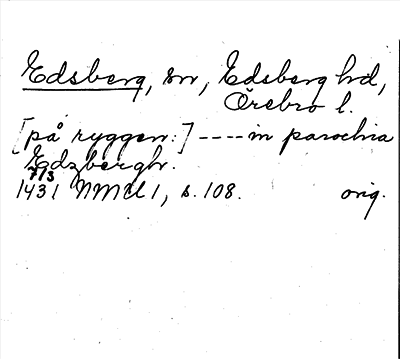 Edsberg, sn, Edsberg hd,
Örebro l.
[på ryggen:] ---- in parochia
Edzbergh.
7/3
1431 NMU 1, s. 108. orig.